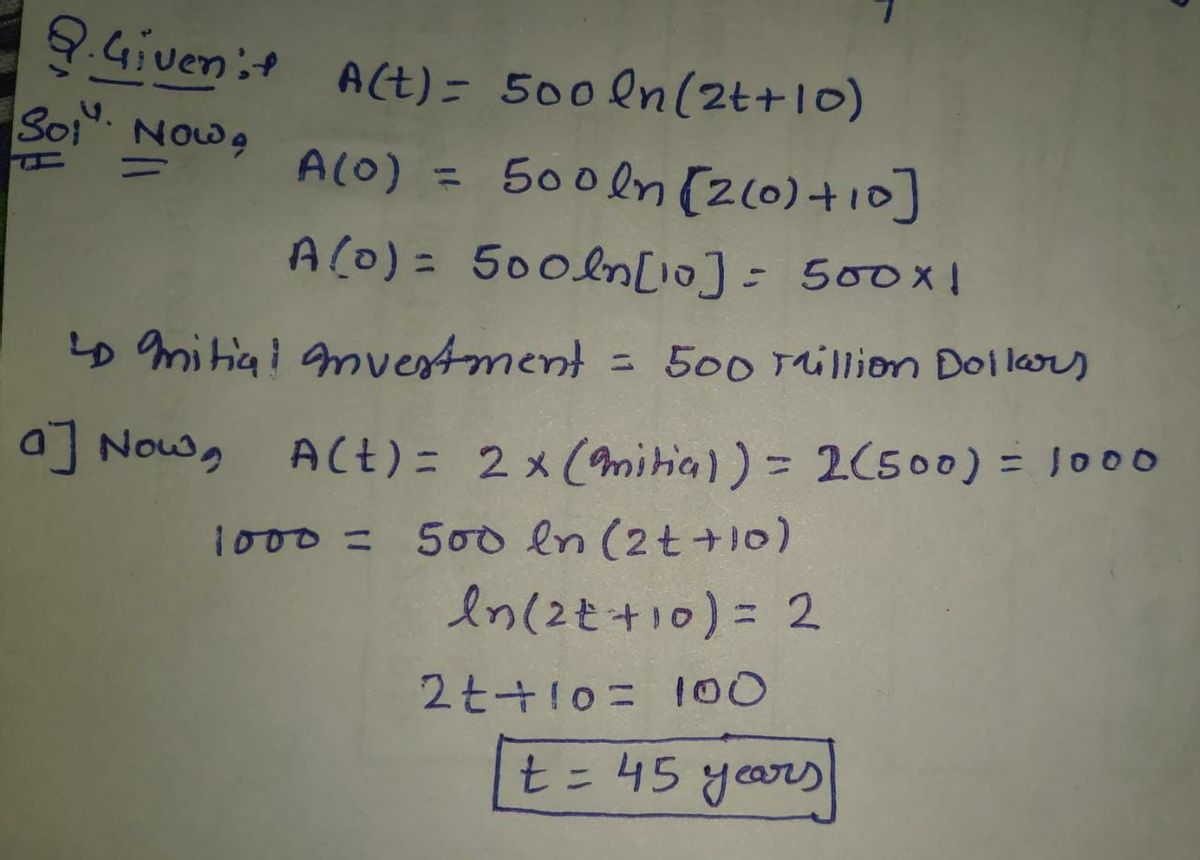 Q. Given :→ A(t) = 500 ln(2t+10)
Solⁿ. Now, A(0) = 500 ln [2(0)+10]
A(0) = 500 ln[10] = 500 x 1
↳ Initial Investment = 500 million Dollars
a] Now, A(t) = 2 x (Initial) = 2(500) = 1000
1000 = 500 ln (2t+10)
ln(2t+10) = 2
2t+10 = 100
t = 45 years